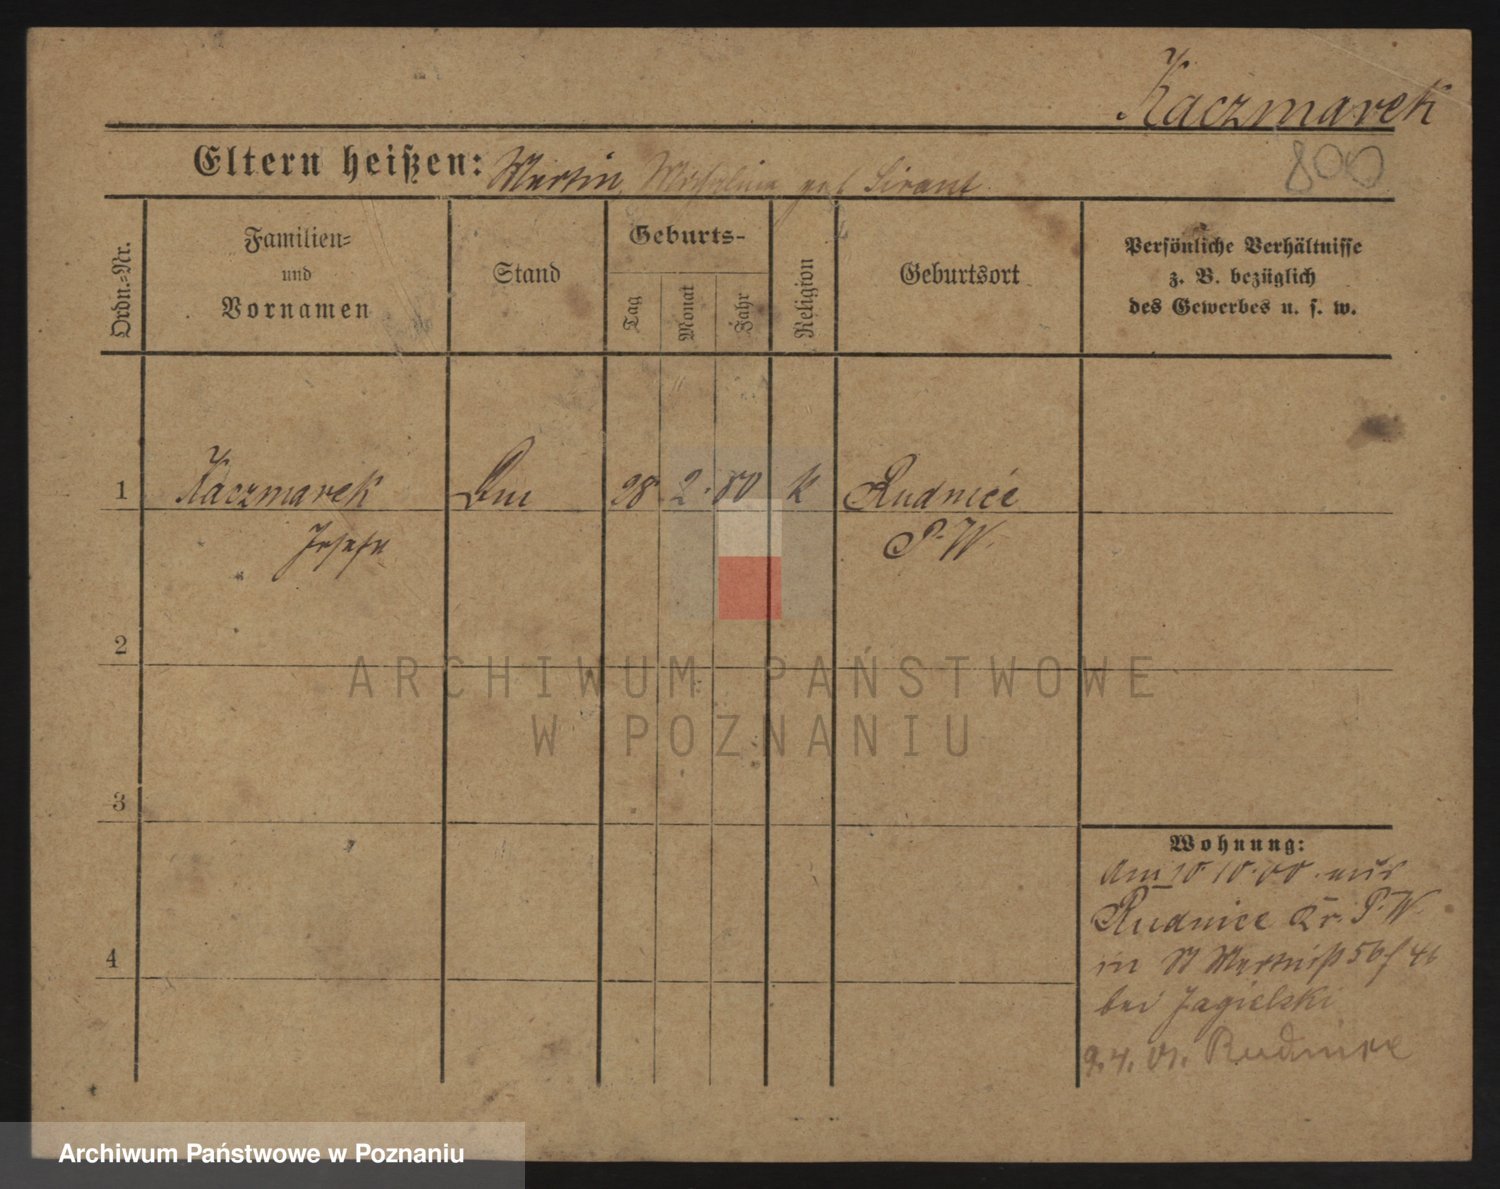 Kaczmarek
800
Eltern heißen: Martin, geb Sirant
Ordn.-Nr.
Familien-
und
Vornamen
Stand
Geburts-
Tag
Monat
Jahr
Religion
Geburtsort
Persönliche Verhältnisse
z. B. bezüglich
des Gewerbes u. s. w.
1 Kaczmarek 28 2. 80 K Rudnice
Josefa P. W.
2
3
4
Wohnung:
Am 10 10. 00. aus
Rudnice Kr. P. W.
in St Martinstr 56/
bei Jagielski
9.4.01. Rudnice
ARCHIWUM PAŃSTWOWE
W POZNANIU
Archiwum Państwowe w Poznaniu